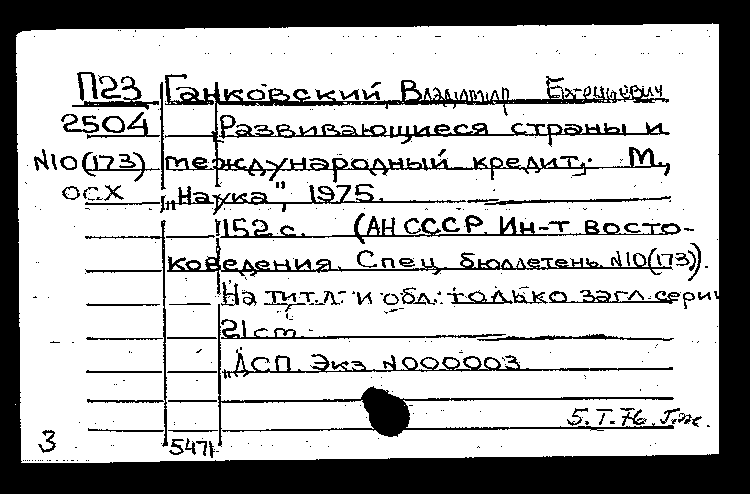 П23 Ганковский, Владимир Евгеньевич
2504 Развивающиеся страны и
N10(173) международный кредит. М.,
ОСХ „Наука", 1975.
152 с. (АН СССР. Ин-т восто-
коведения. Спец. бюллетень N10(173)).
На тит. л. и обл. только загл. серии
21 cm.
„ДСП. Экз. N000003
5.I.76.
3 5471